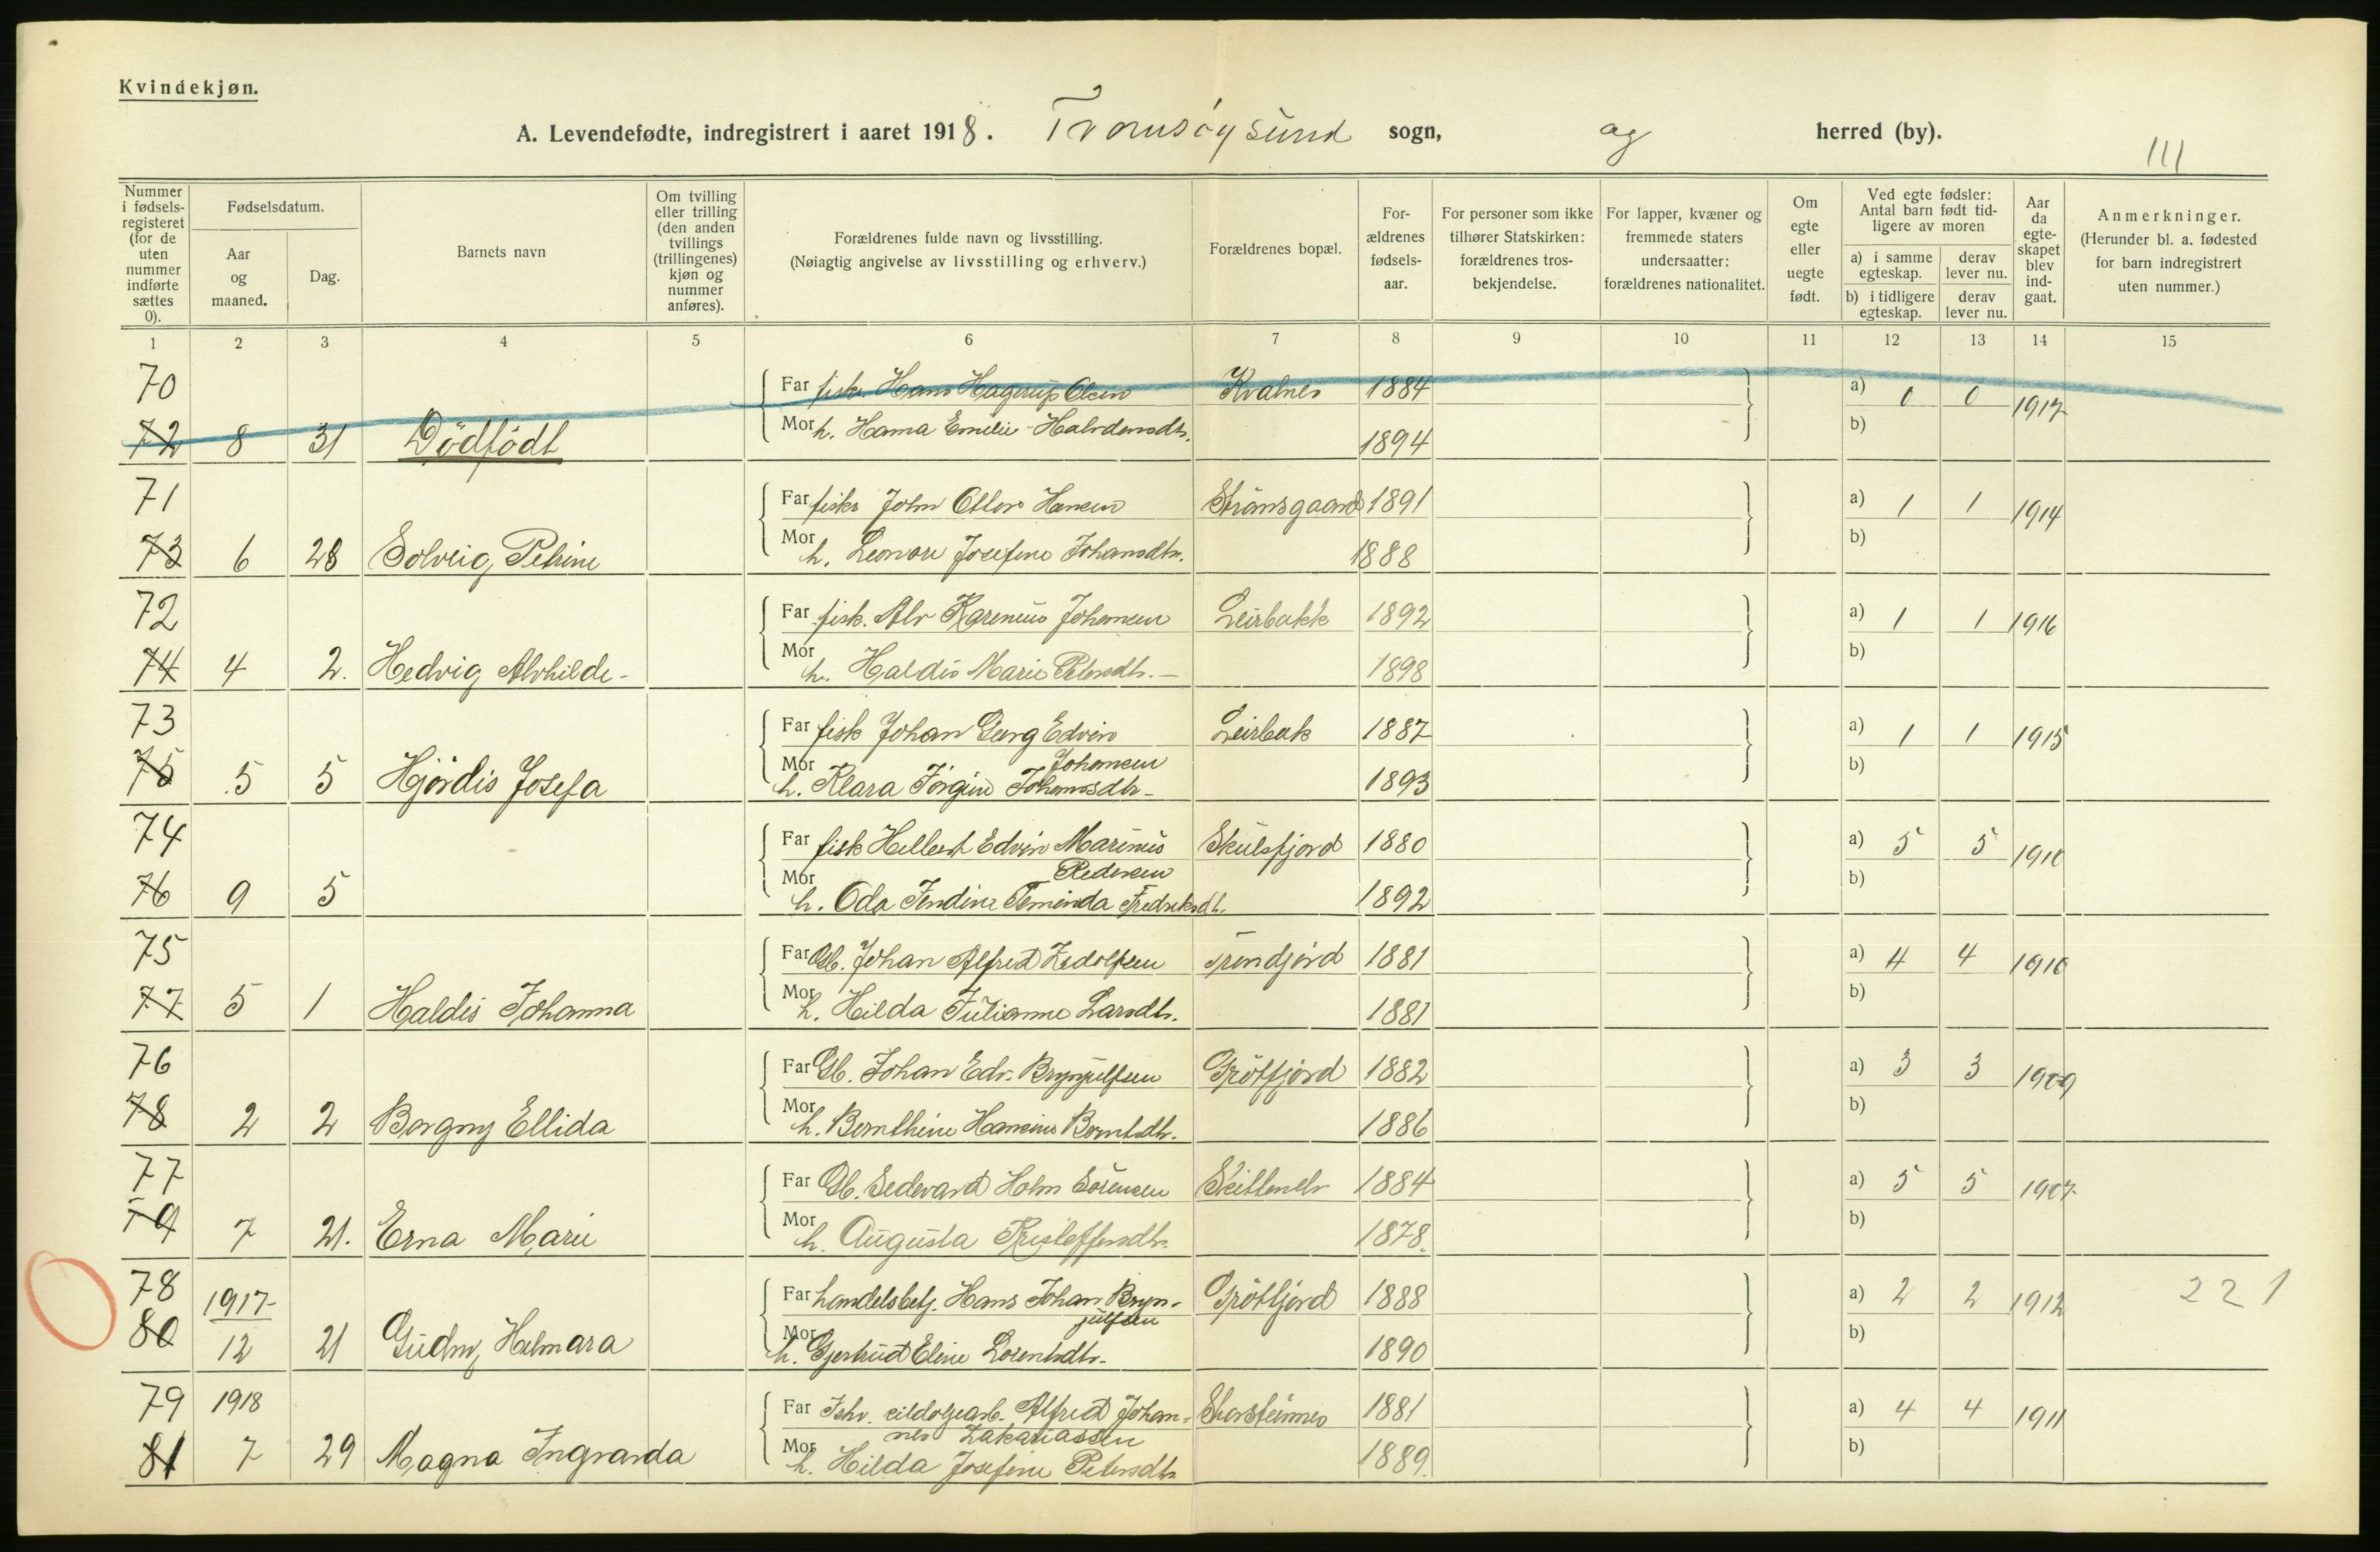 Kvindekjøn.
A. Levendefødte, indregistrert i aaret 1918. Tromsøysund sogn, og herred (by).
111
Nummer i fødselsregisteret (for de uten nummer indførte sættes 0).
Fødselsdatum.
Aar og maaned.
Dag.
Barnets navn
Om tvilling eller trilling (den anden tvillings (trillingenes) kjøn og nummer anføres).
Forældrenes fulde navn og livsstilling.
(Nøiagtig angivelse av livsstilling og erhverv.)
Forældrenes bopæl.
Forældrenes fødselsaar.
For personer som ikke tilhører Statskirken: forældrenes trosbekjendelse.
For lapper, kvæner og fremmede staters undersaatter: forældrenes nationalitet.
Om egte eller uegte født.
Ved egte fødsler: Antal barn født tidligere av moren
a) i samme egteskap.
derav lever nu.
b) i tidligere egteskap.
derav lever nu.
Aar da egteskapet blev indgaat.
Anmerkninger.
(Herunder bl. a. fødested for barn indregistrert uten nummer.)
1 2 3 4 5 6 7 8 9 10 11 12 13 14 15
70 Far fisk. Hans Hagerup Olsen Kvalnes 1884 a) 0 0 1917
72 8 31 Dödfödt Mor h. Hanna Emelie Halvdansdtr. 1894 b)
71 Far fisker John Hansen Strømsgaard 1891 a) 1 1 1914
73 6 28 Solveig Petrine Mor h. Leonore Josefine Johansdtr. 1888 b)
72 Far fisk. Alv Karenius Johansen Leirbakk 1892 a) 1 1 1916
74 4 2. Hedvig Alvhilde - Mor h. Haldis Marie Petersdtr. - 1898 b)
73 Far fisk Johan Georg Edvin Leirbak 1887 a) 1 1 1915
Johansen
75 5 5 Hjördis Josefa Mor h. Klara Jörgine Johansdtr - 1893 b)
74 Far fisk Hilbert Edvin Marinius Skulsfjord 1880 a) 5 5 1910
Pedersen
76 9 5 Mor h. Oda Fredriksdt. 1892 b)
75 Far Gb. Johan Alfred Tröndjord 1881 a) 4 4 1910
77 5 1 Haldis Johanna Mor h. Hilda Julianne Larsdtr. 1881 b)
76 Far Gb. Johan Edv. Brynjulfsen Grötfjord 1882 a) 3 3 1909
78 2 2 Borgny Ellida Mor h. Bernthine Hansine Berntsdtr. 1886 b)
77 Far Gb. Sedevard Holm Sörensen 1884 a) 5 5 1907
79 7 21. Erna Marie Mor h. Augusta Kristoffersdtr. 1878. b)
78 1917 Far handelsbetj. Hans Johan Bryn- Grötfjord 1888 a) 2 2 1912 221
julfsen
80 12 21 Gudny Helmara Mor h. Gjertrud Eline Lorentsdtr. 1890 b)
79 1918 Far Alfred Johan- Storsteinnes 1881 a) 4 4 1911
nes Zakariassen
81 7 29 Magna Ingvarda Mor h. Hilda Josefine Petersdtr 1889. b)